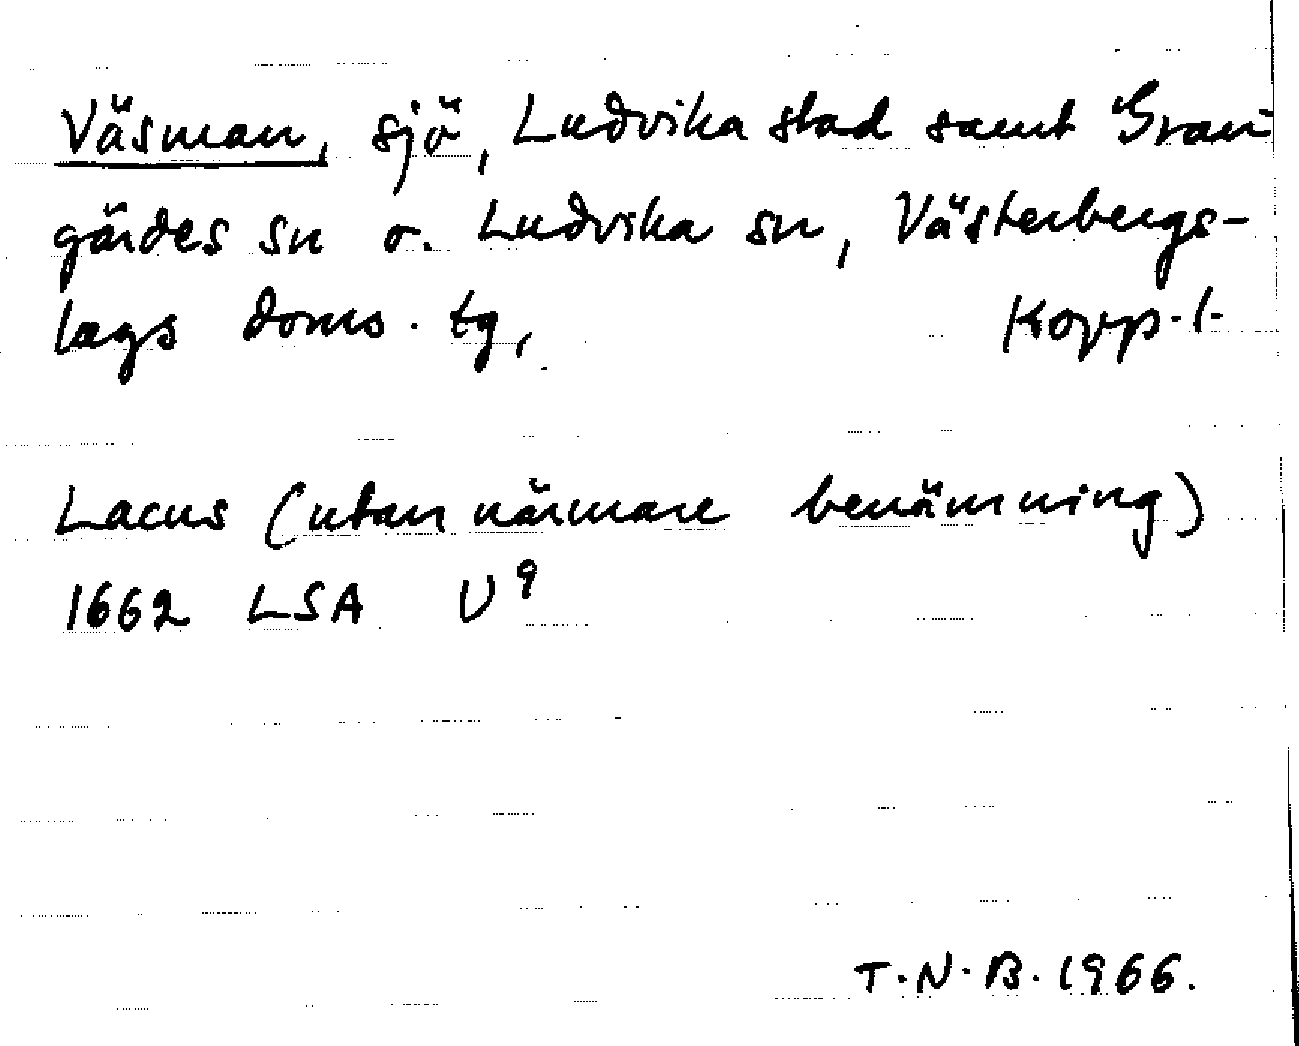 Väsman, sjö, Ludvika stad samt Gran-
gärdes sn o. Ludvika sn, Västerbergs-
lags doms. tg, Kopp. l.
Lacus (utan närmare benämning)
1662 LSA U9
T.N.B. 1966.